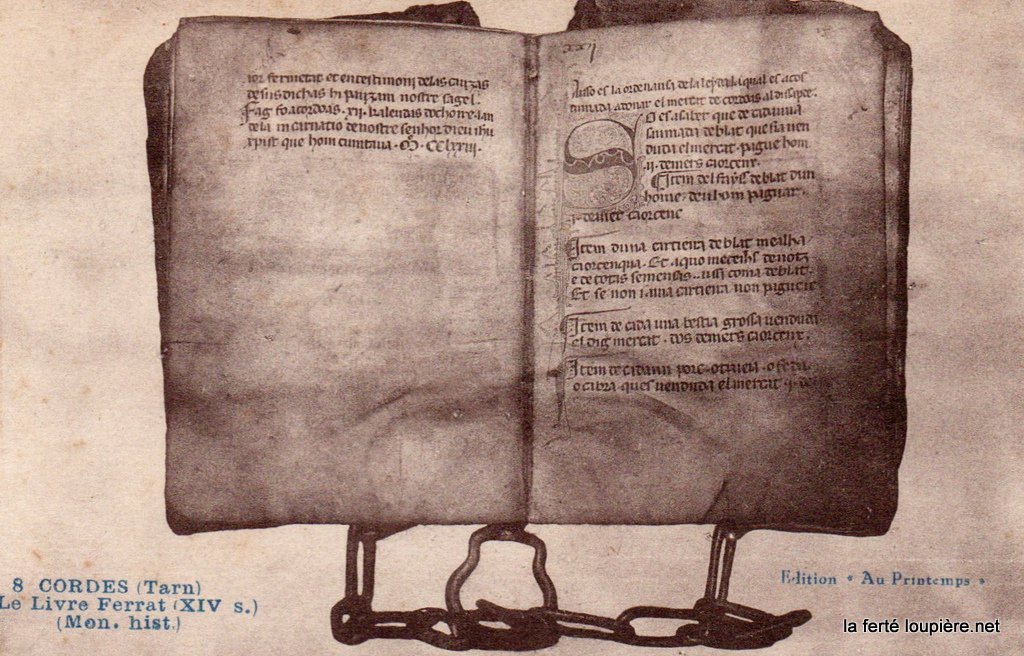 ior fermetat et en testimoni de las cauzas
desus dichas hi pauzam nostre sagel.
fag fo a cordoas . xii . kalendas dochoire . lan
de la incarnatio de nostre senhor dieu ihu
xpist que hom cuntaua . Mº CC lxxiii .
xxi
Aiso es la ordenansa de la leyda la qual es acos
tumada a donar el mercat de cordoas al dissapte.
So es a saber que de cada una
saumada de blat que sia uen
duda el mercat . pague hom
.ii. deniers caorcenx .
Item del fays de blat dun
home . deu hom paguar .
.i. denier caorcenc
Item duna cartiera de blat mealha
caorcenqua . Et aquo meteihs de notz
e de totas semensas . aissi coma de blat .
Et se non i a una cartiera non pague re
Item de cada una bestia grossa uenduda
el dig mercat . dos deniers caorcenx .
Item de cada un porc . o truieia . o feda
o cabra ques uenduda el mercat . i . de
8 CORDES (Tarn)
Le Livre Ferrat (XIV s.)
(Mon. hist.)
Edition « Au Printemps »
la ferté loupière.net